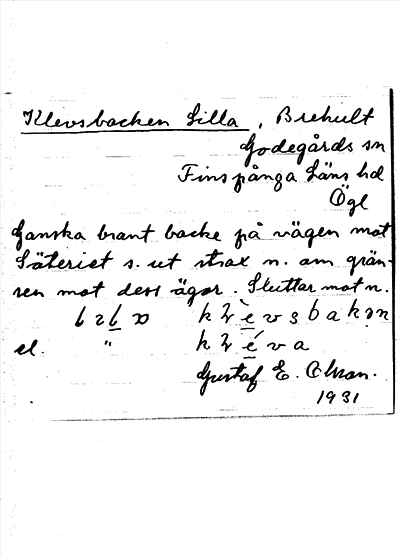 Klevsbacken Lilla, Brehult
Godegårds sn
Finspånga Läns hd
Ögl
Ganska brant backe på vägen mot
Säteriet s. ut strax n. om grän-
sen mot dess ägor. Sluttar mot n.
el. "
Gustaf E. Olson.
1931